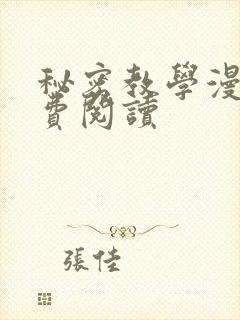 秘密教學漫
費閱讀
張佳